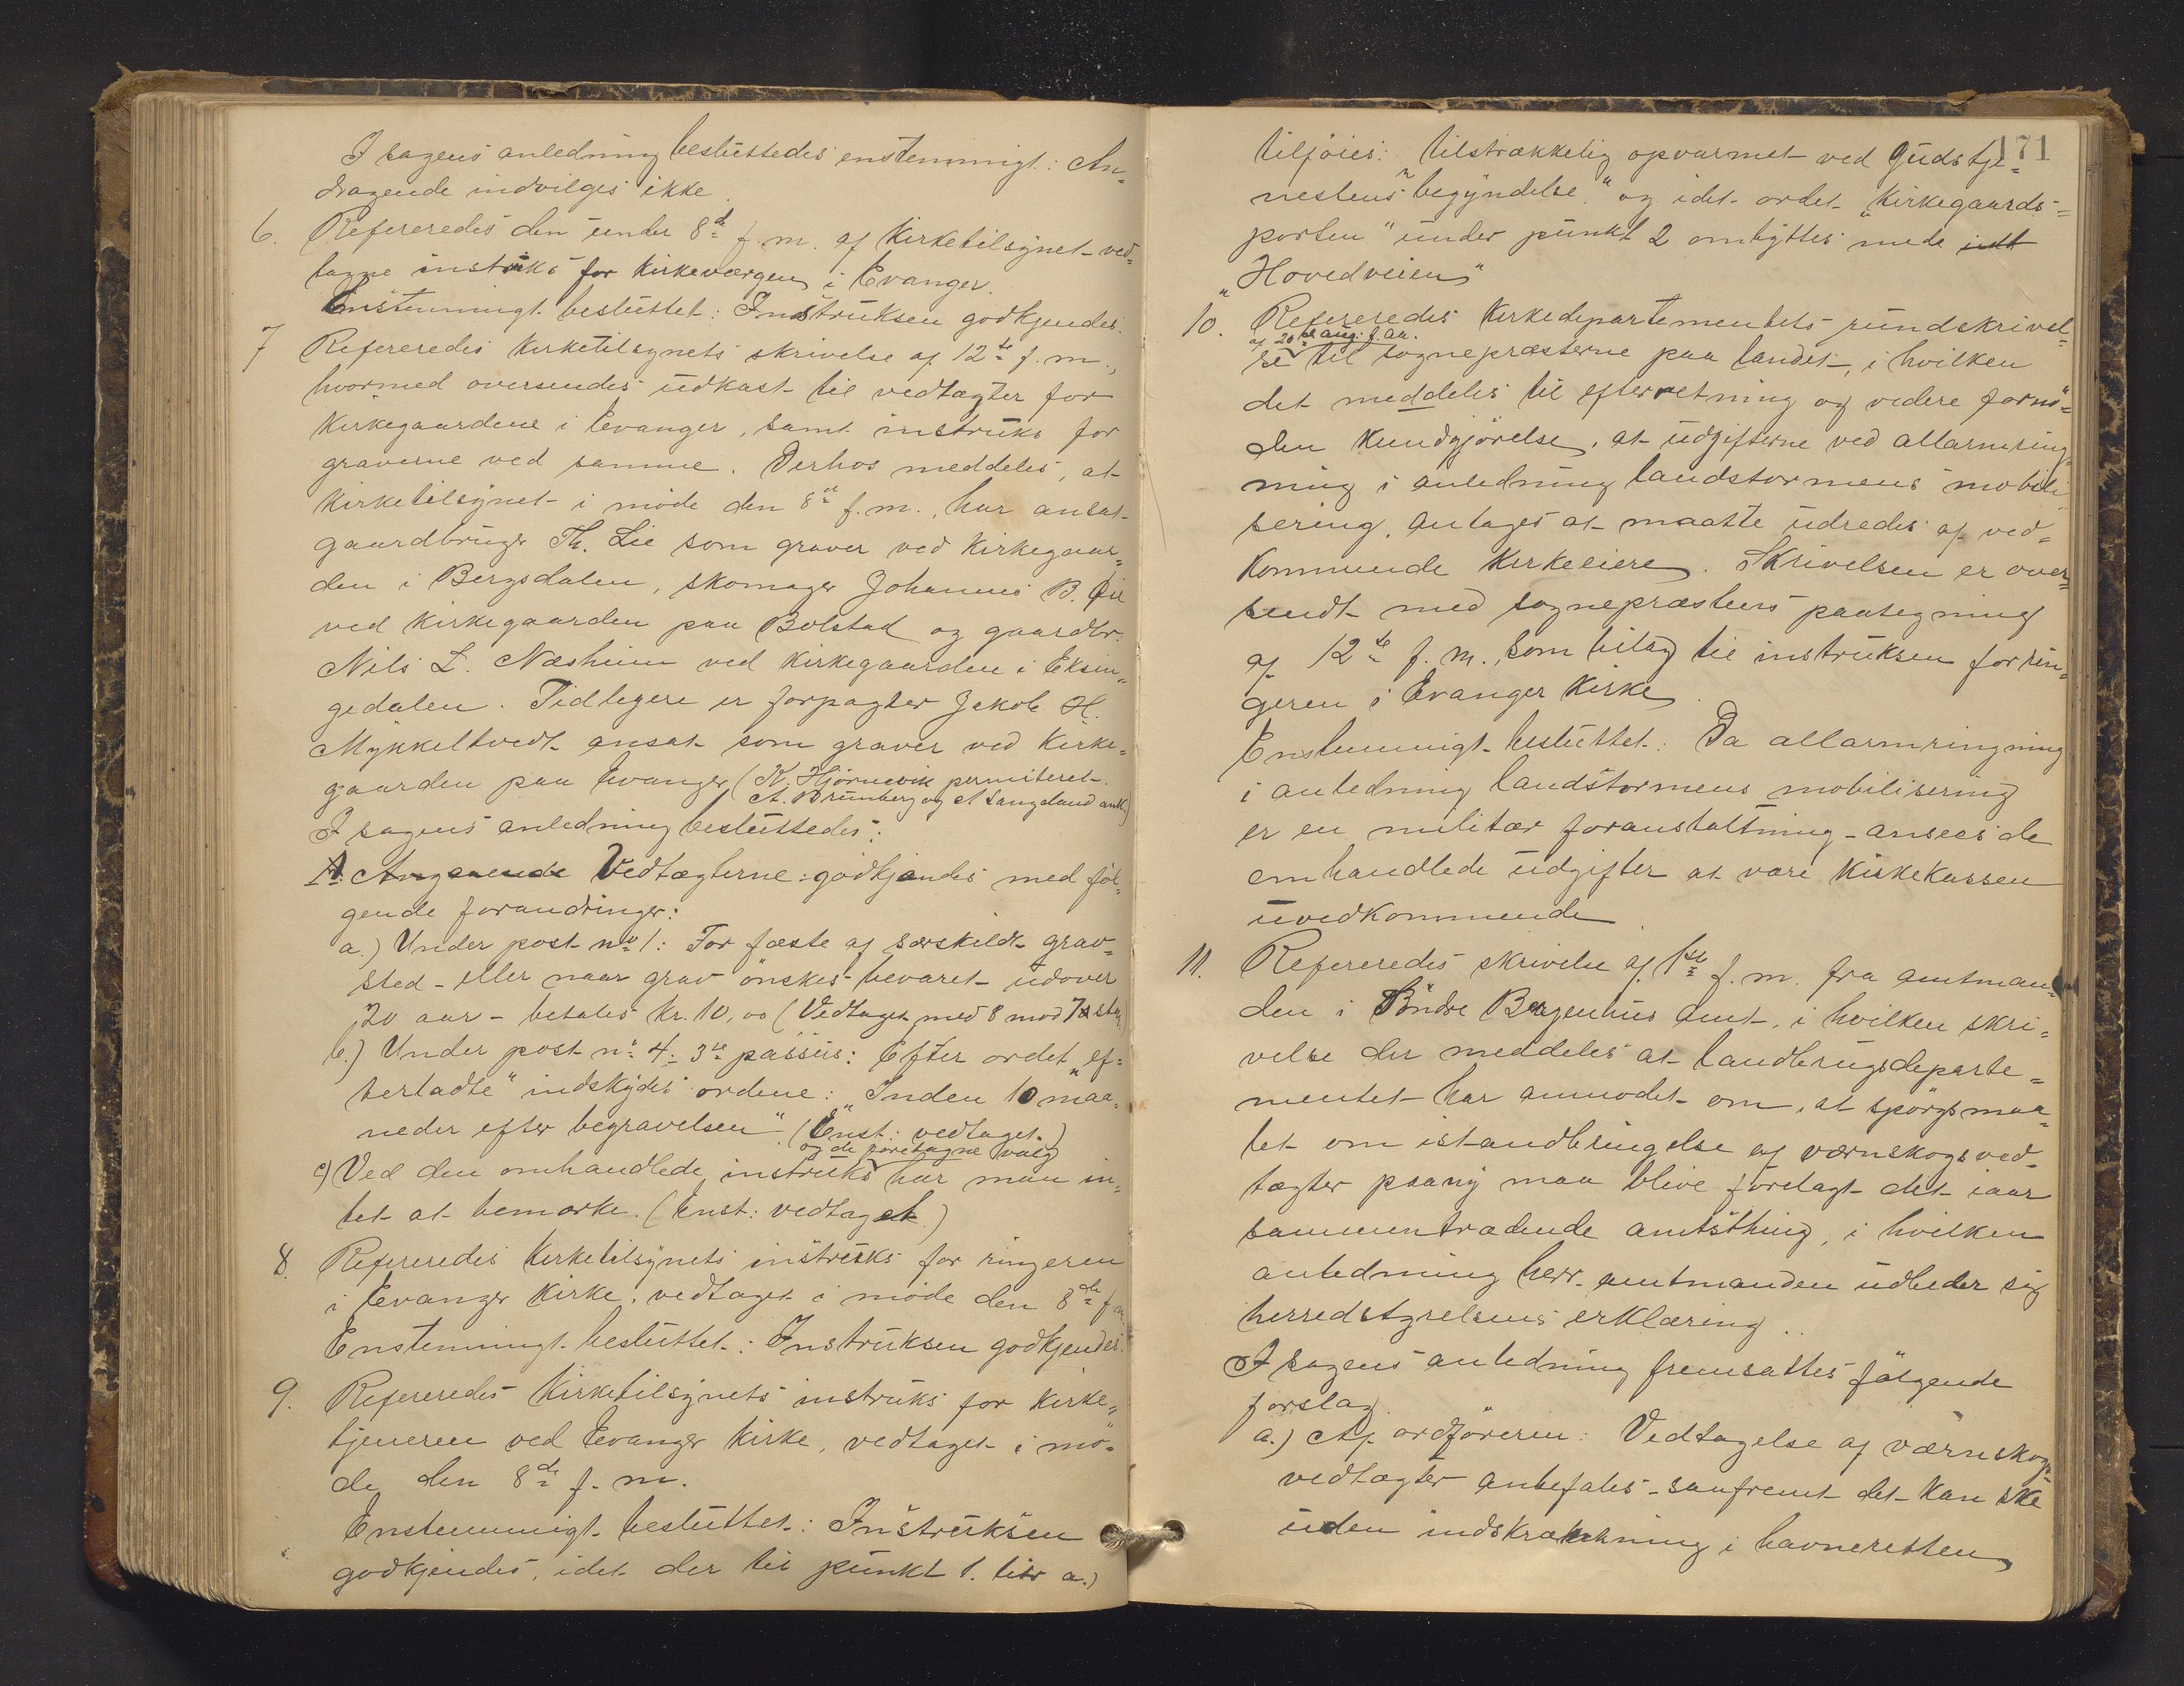 I sagens anledning besluttedes enstemmigt: An-
dragende indvilges ikke.
6. Refereredes den under 8de f. m. af Kirketilsynet ved-
tagne instruks for Kirkeværgen i Evanger.
Enstemmigt besluttet: Instruksen godkjendes.
7 Refereredes Kirketilsynets skrivelse af 12te f. m.,
hvormed oversendes udkast til vedtægter for
Kirkegaardene i Evanger, samt instruks for
graverne ved samme. Derhos meddeles, at
Kirketilsynet i møde den 8de f. m., har ansat
gaardbruger Th. Lie som graver ved Kirkegaar-
den i Bergsdalen, skomager Johannes B.
ved Kirkegaarden paa Bolstad og gaardbr.
Nils L. Næsheim ved Kirkegaarden i Eksin-
gedalen. Tidligere er forpagter Jakob H.
Mykkeltvedt ansat som graver ved Kirke-
gaarden paa Evanger (K. Hjörnevik permiteret.
A. Brunberg og A Langeland ank)
I sagens anledning besluttedes:
A: Angaaende Vedtægterne: godkjendes med föl-
gende forandringer:
a.) Under post no 1: For fæste af særskildt grav-
sted - eller naar grav önskes bevaret udover
20 aar - betales kr. 10,00 (Vedtaget med 8 mod 7 st.)
b.) Under post no 4. 3die passus: Efter ordet „ef-
terladte“ indskydes ordene: „Inden 10 maa-
neder efter begravelsen“. (Enst: vedtaget.)
og de foretagne valg
c) Ved den omhandlede instruks har man in-
tet at bemærke. (Enst: vedtaget.)
8. Refereredes Kirketilsynets instruks for ringeren
i Evanger Kirke, vedtaget i møde den 8de f m.
Enstemmigt besluttet: Instruksen godkjendes.
9. Refereredes Kirketilsynets instruks for Kirke-
tjeneren ved Evanger Kirke, vedtaget i mö-
de den 8de f. m.
Enstemmigt besluttet: Instruksen
godkjendes, idet der til punkt 1. litr a.)
171
tilföies: „tilstrækkelig opvarmet ved Gudstje-
nestens begyndelse“ og idet ordet „Kirkegaards-
porten“ under punkt 2 ombyttes med
„Hovedveien“
10. Refereredes Kirkedepartementets rundskrivel-
af 20de aug. f. aa.
se til sognepræsterne paa landet, i hvilken
det meddeles til efterretning og videre fornö-
den Kundgjörelse, at udgifterne ved allarmring-
ning i anledning landstormens mobili-
sering, antages at maatte udredes af ved-
kommende Kirkeeiere. Skrivelsen er over-
sendt med sognepræstens paategning
af 12te f. m., som bilag til instruksen for rin-
geren i Evanger Kirke.
Enstemmigt besluttet: Da allarmringning
i anledning landstormens mobilisering
er en militær foranstaltning - ansees de
omhandlede udgifter at være Kirkekassen
uvedkommende
11. Refereredes skrivelse af 1ste f. m. fra amtman-
den i Söndre Bergenhus amt, i hvilken skri-
velse der meddeles at landbrugsdeparte-
mentet har anmodet om, at spörgsmaa-
let om istandbringelse af værnskogsved-
tægter paany maa blive forelagt det iaar
sammentrædende amtsthing, i hvilken
anledning herr amtmanden udbeder sig
herredstyrelsens erklæring.
I sagens anledning fremsattes fölgende
forslag.
a.) Af ordföreren: Vedtagelse af værnskogs-
vedtægter anbefales - saafremt det kan ske
uden indskrænkning i havneretten